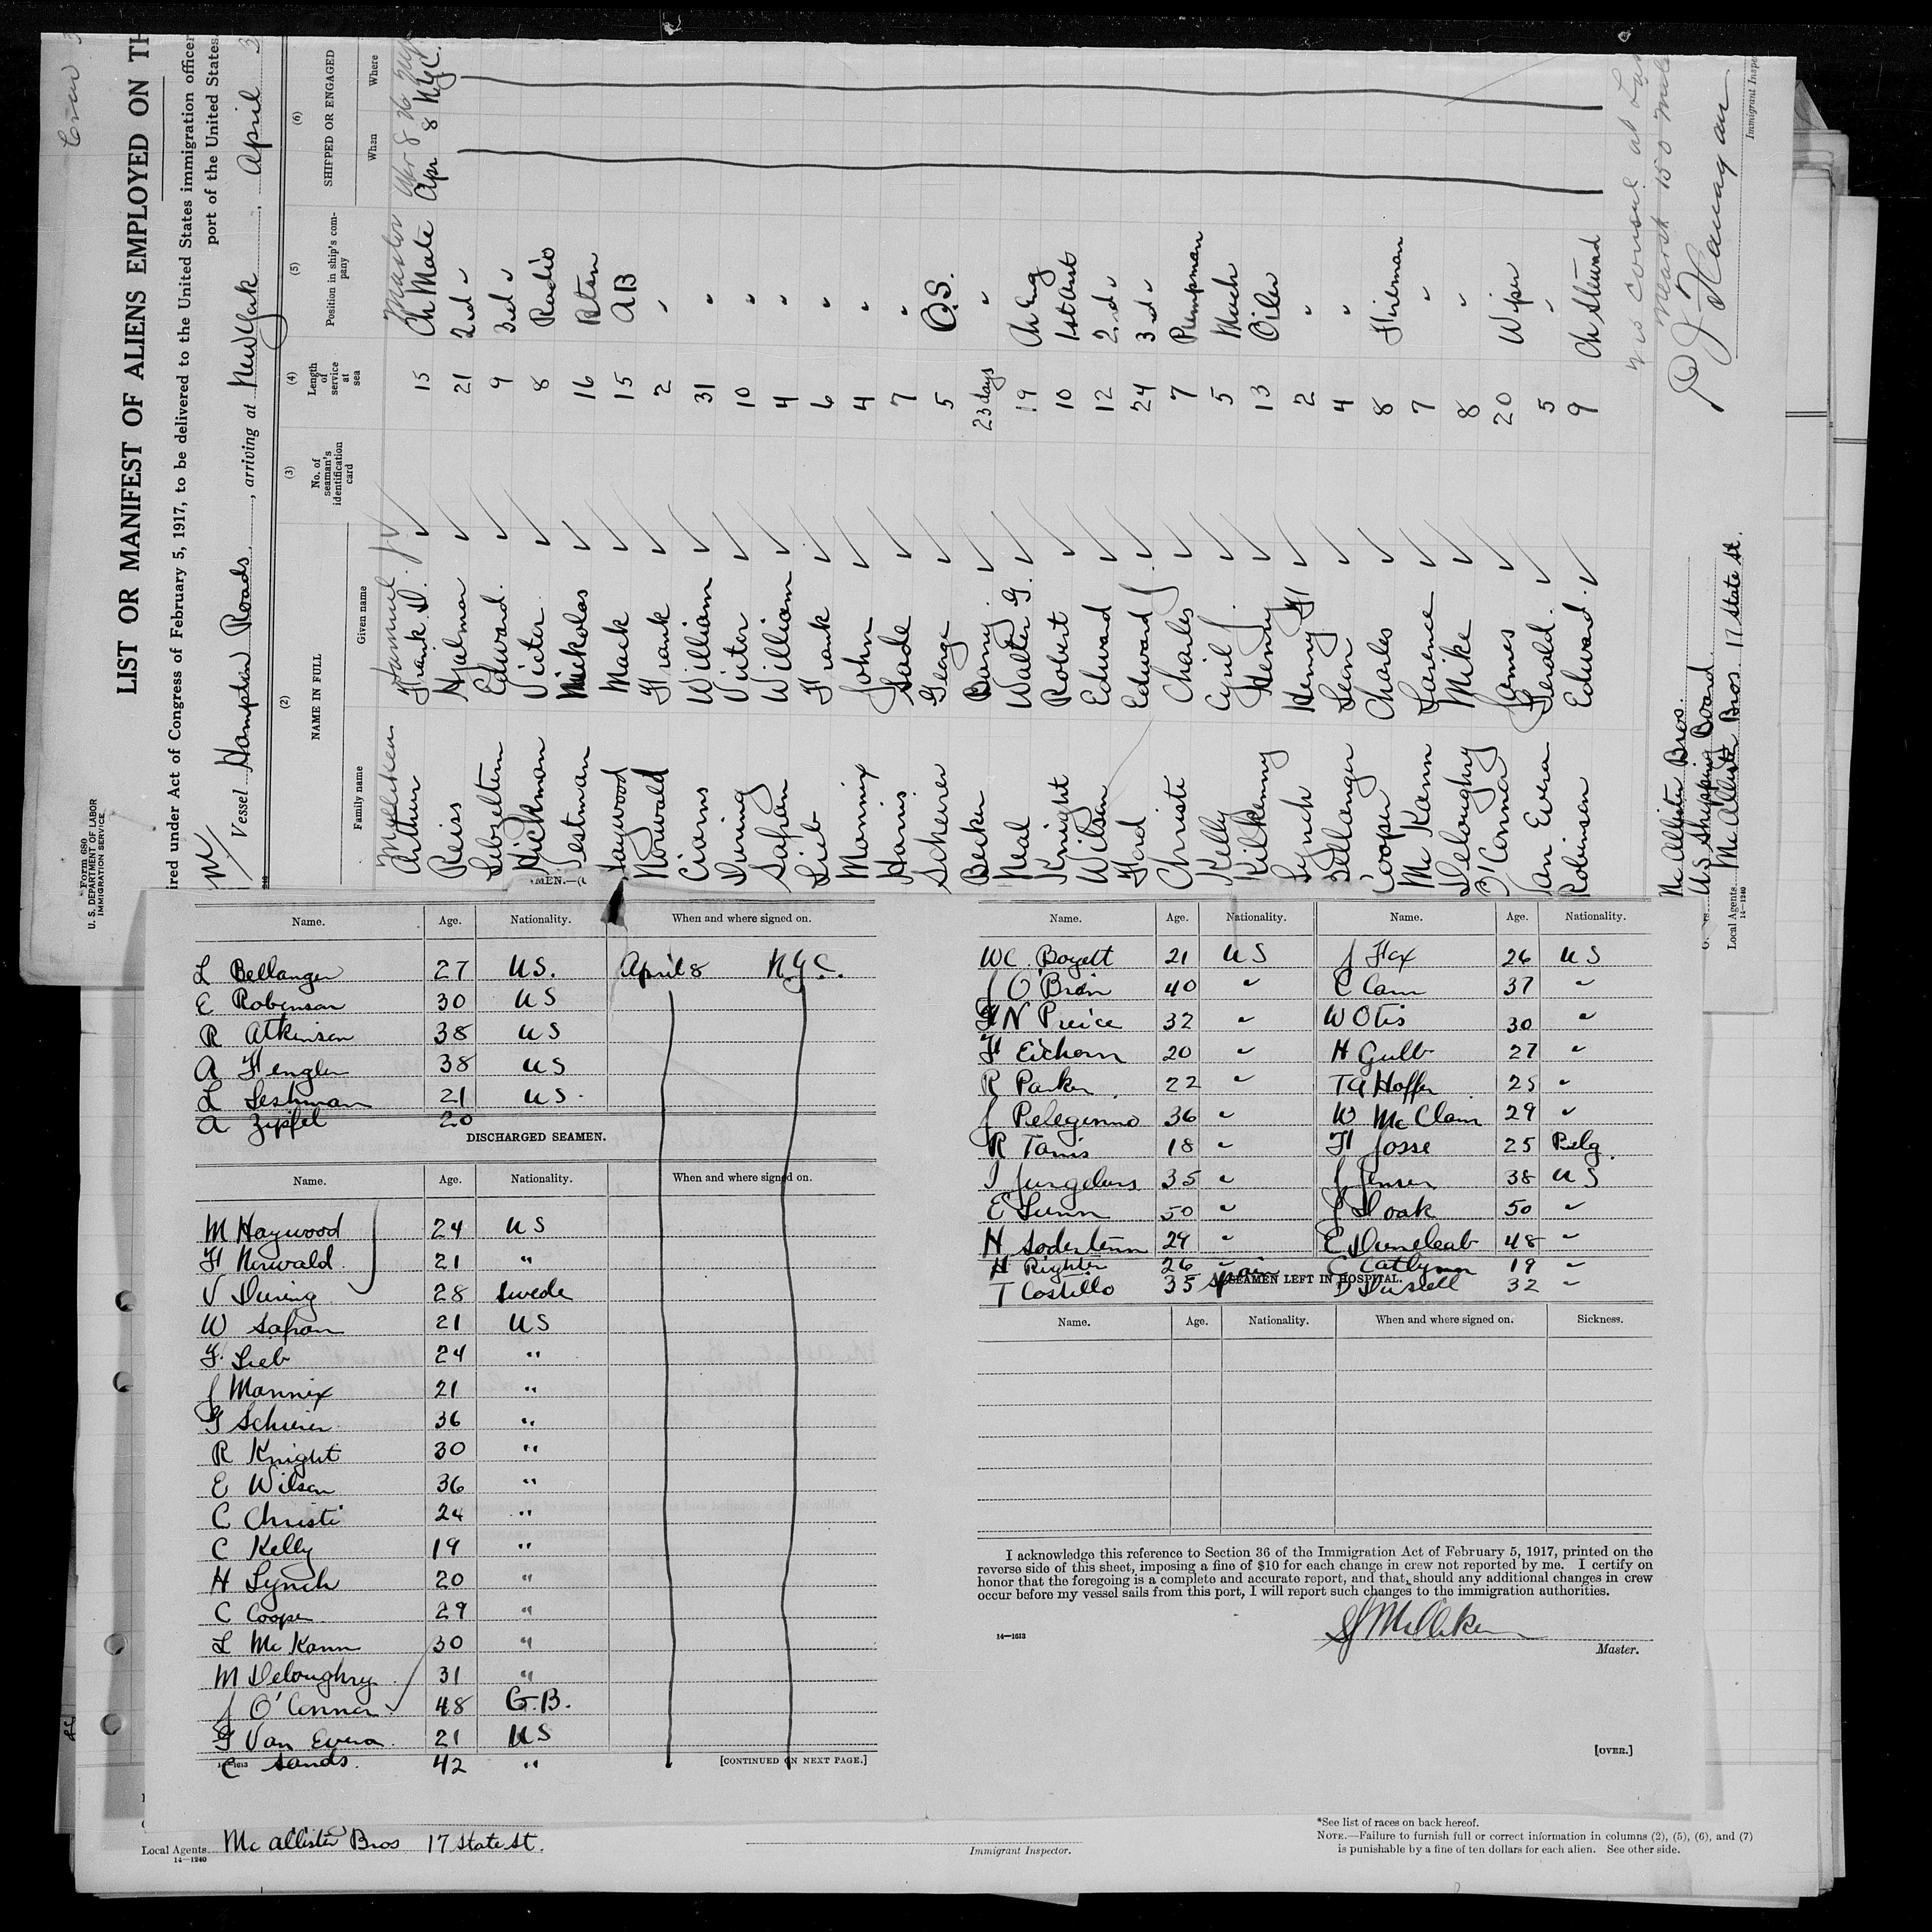 Form 680
U. S. DEPARTMENT OF LABOR
IMMIGRATION SERVICE
Crew
LIST OR MANIFEST OF ALIENS EMPLOYED ON TH
ired under Act of Congress of February 5, 1917, to be delivered to the United States immigration officer
port of the United States.
M/ Vessel Hampton Roads, arriving at New York, April 3
(2) (3) (4) (5) (6)
NAME IN FULL No. of seaman's identification card Length of service at sea Position in ship's company SHIPPED OR ENGAGED
Family name Given name When Where
Master Apr 8 26 NYC
Arthur Frank D. 15 Ch Mate Apr 8 NYC.
Reiss Hjalmar 21 2nd "
Edward. 9 3rd "
Hickman Victor 8 Radio
Nickolas 16 Btsn
Haywood Mack 15 AB
Norwald Frank 2 "
Cioms William 31 "
During Victor 10 "
Safran William 4 "
Lieb Frank 6 "
Mannix John 4 "
Harris 7 "
Scheirer George 5 O.S.
Becker 23 days "
Neal Walter G. 19 Ch Eng
Knight Robert 10 1st Asst
Wilson Edward 12 2nd "
Ford Edward J. 24 3rd "
Christi Charles 7 Pumpman
Kelly Cyril J. 5 Mech
Kilkenny Henry 13 Oiler
Lynch Henry H 2 "
Bellanger Leon 4 "
Cooper Charles 8 Fireman
Mc Kann Larence 7 "
Deloughry Mike 8 "
O'Connor James 20 Wiper
Van Evera Gerald. 5 "
Robinson Edward. 9 Ch Steward
no consul at
nearst 150 mile
Immigrant Inspe
Mc Allister Bros.
US Shipping Board
Local Agents Mc Allister Bros 17 State St.
14—1240
MEN.—(
Name. Age. Nationality. When and where signed on.
L Bellanger 27 US. April 8 N.Y.C.
E Robinson 30 US
R Atkinson 38 US
A Fengler 38 US
L Leshman 21 US.
A Zipfel 20
DISCHARGED SEAMEN.
Name. Age. Nationality. When and where signed on.
M Haywood 24 US
F Norwald 21 "
V During 28 Swede
W Safran 21 US
F. Lieb 24 "
J Mannix 21 "
G Scheirer 36 "
R Knight 30 "
E Wilson 36 "
C Christi 24 "
C Kelly 19 "
H Lynch 20 "
C Cooper 29 "
L Mc Kann 30 "
M Deloughry 31 "
J O'Connor 48 G.B.
G Van Evera 21 US
C Sands. 42 "
14—1613 [CONTINUED ON NEXT PAGE.]
Name. Age. Nationality. Name. Age. Nationality.
WC. Boyett 21 US J Hex 26 US
J O'Brien 40 " C Cam 37 "
N Preice 32 " W Otis 30 "
H Eichorn 20 " H Gulb 27 "
R Parker 22 " TA Hoffer 25 "
J Pelegrinno 36 " W McClain 29 "
R Tanis 18 " H Josse 25 Belg.
I Jungclaus 35 " J Jensen 38 US
E Lunn 50 " J Doak 50 "
H Soderstenn 29 " E Duncleab 48 "
H Righter 26 " C 19 "
T Costillo 35 Spain D Dursell 32 "
SEAMEN LEFT IN HOSPITAL.
Name. Age. Nationality. When and where signed on. Sickness.
I acknowledge this reference to Section 36 of the Immigration Act of February 5, 1917, printed on the
reverse side of this sheet, imposing a fine of $10 for each change in crew not reported by me. I certify on
honor that the foregoing is a complete and accurate report, and that, should any additional changes in crew
occur before my vessel sails from this port, I will report such changes to the immigration authorities.
14—1613
Master.
[OVER.]
*See list of races on back hereof.
NOTE.—Failure to furnish full or correct information in columns (2), (5), (6), and (7)
is punishable by a fine of ten dollars for each alien. See other side.
Local Agents Mc Allister Bros 17 State St.
14—1240
Immigrant Inspector.